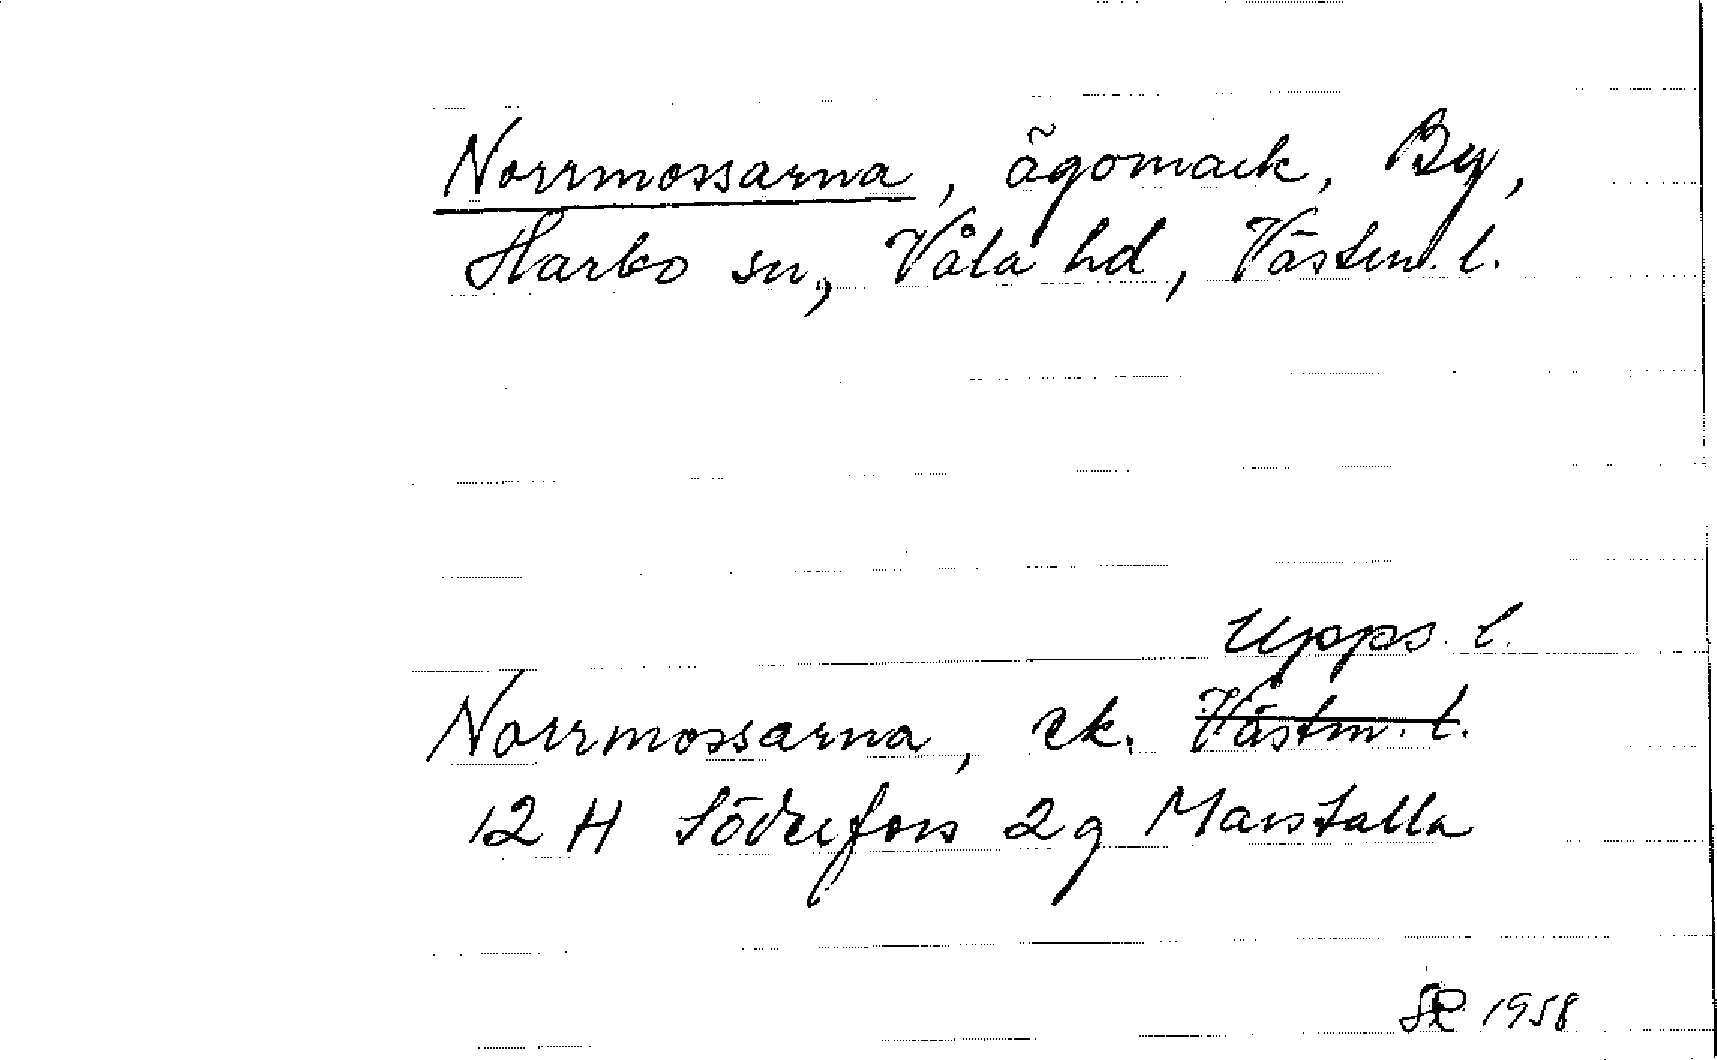 Norrmossarna, ägomark, By,
Harbo sn, Våla hd, Västm. l.
Upps. l.
Norrmossarna, ek. Västm. l.
12 H Söderfors 2 g Marstalla
SR 1958